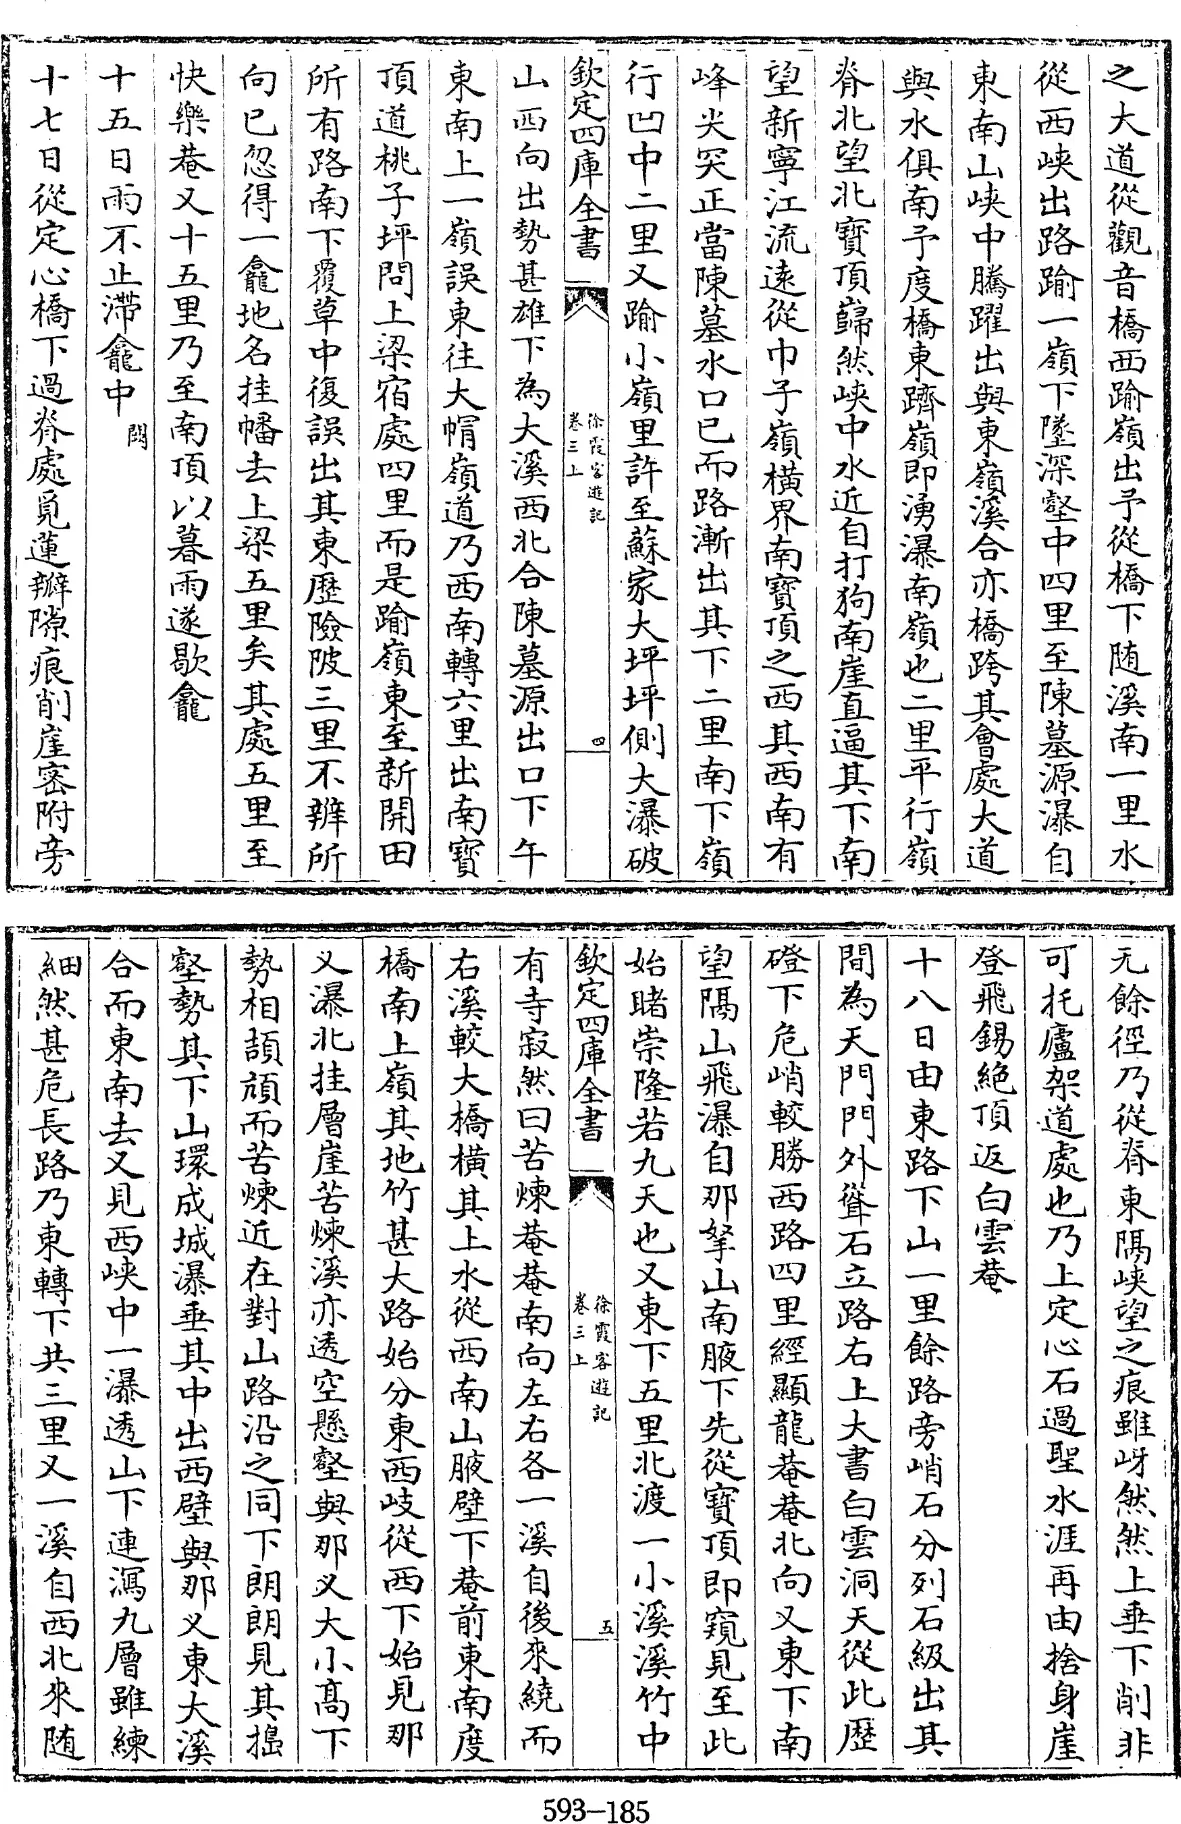 之大道從觀音橋西踰嶺出予從橋下随溪南一里水
從西峽出路踰一嶺下墜深壑中四里至陳墓源瀑自
東南山峽中騰躍出與東嶺溪合亦橋跨其會處大道
與水俱南予度橋東躋嶺即湧瀑南嶺也二里平行嶺
脊北望北寳頂巋然峽中水近自打狗南崖直逼其下南
望新寧江流遠從巾子嶺橫界南寳頂之西其西南有
峰尖突正當陳墓水口已而路漸出其下二里南下嶺
行凹中二里又踰小嶺里許至蘇家大坪坪側大瀑破
欽定四庫全書
徐霞客遊記
卷三上
四
山西向出勢甚雄下為大溪西北合陳墓源出口下午
東南上一嶺誤東往大帽嶺道乃西南轉六里出南寳
頂道桃子坪問上梁宿處四里而是踰嶺東至新開田
所有路南下覆草中復誤出其東歴險陂三里不辨所
向已忽得一龕地名挂幡去上梁五里矣其處五里至
快樂菴又十五里乃至南頂以暮雨遂歇龕
十五日雨不止滯龕中 闕
十七日從定心橋下過脊處覓蓮瓣隙痕削崖密附旁
无餘徑乃從脊東隅峽望之痕雖岈然然上垂下削非
可托廬架道處也乃上定心石過聖水涯再由捨身崖
登飛錫絶頂返白雲菴
十八日由東路下山一里餘路旁峭石分列石級出其
間為天門門外聳石立路右上大書白雲洞天從此歴
磴下危峭較勝西路四里經顯龍菴菴北向又東下南
望隅山飛瀑自那拏山南腋下先從寳頂即窺見至此
始睹崇隆若九天也又東下五里北渡一小溪溪竹中
欽定四庫全書
徐霞客遊記
卷三上
五
有寺寂然曰苦煉菴菴南向左右各一溪自後來繞而
右溪較大橋橫其上水從西南山腋壁下菴前東南度
橋南上嶺其地竹甚大路始分東西岐從西下始見那
义瀑北挂層崖苦煉溪亦透空懸壑與那义大小高下
勢相頡頏而苦煉近在對山路沿之同下朗朗見其搗
壑勢其下山環成城瀑垂其中出西壁與那义東大溪
合而東南去又見西峽中一瀑透山下連瀉九層雖練
細然甚危長路乃東轉下共三里又一溪自西北來随
593-185